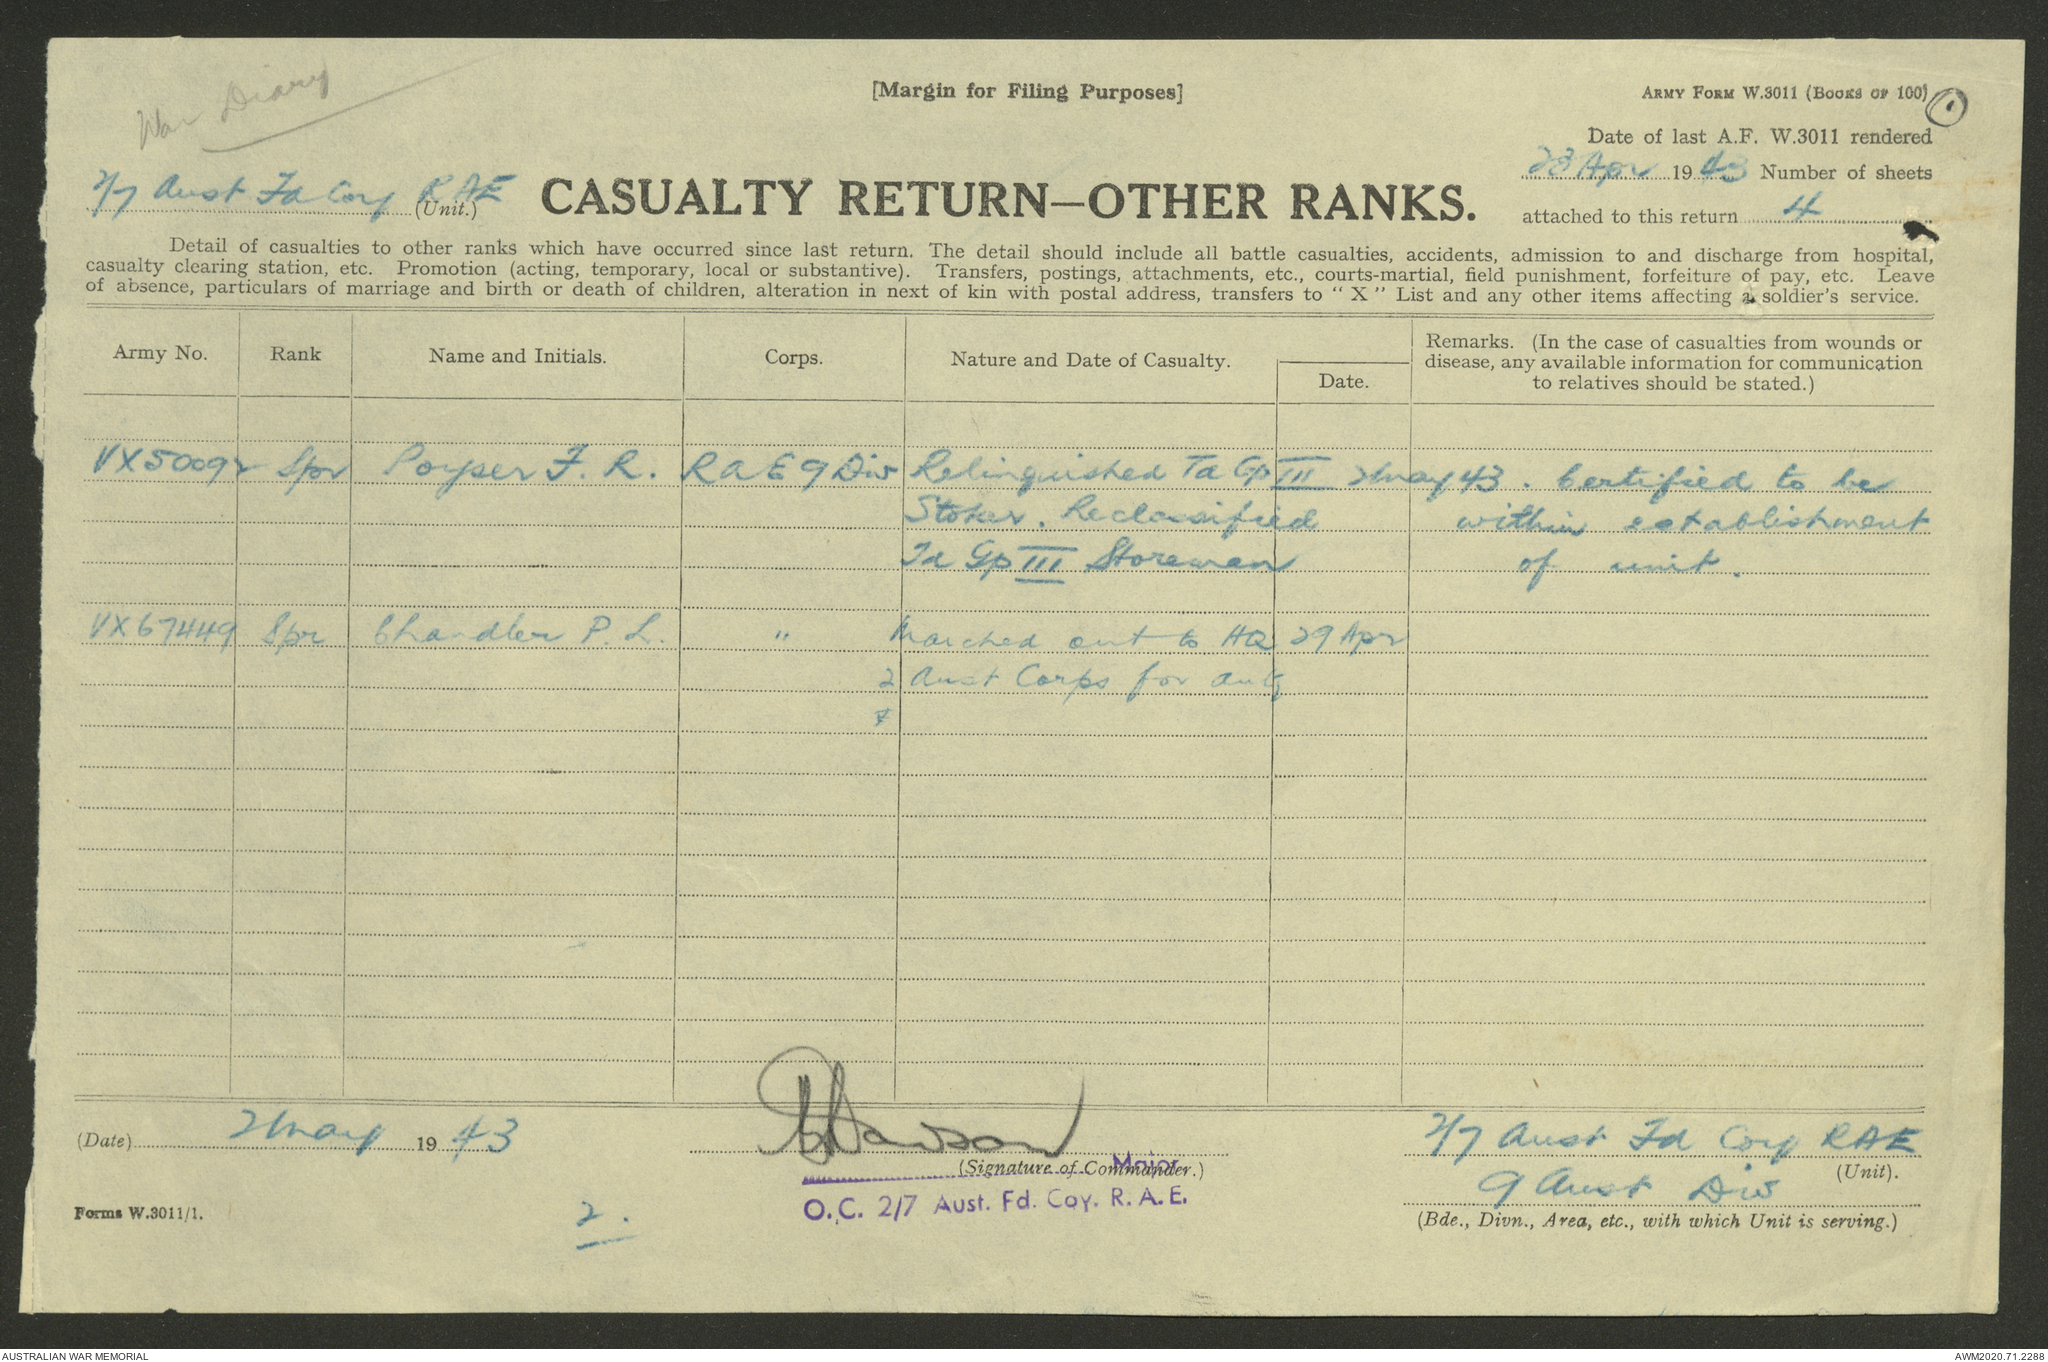 War Diary
[Margin for Filing Purposes]
ARMY FORM W.3011 (BOOKS OF 100) 1
Date of last A.F. W.3011 rendered
23 Apr 1943 Number of sheets
attached to this return 4
2/7 Aust Fd Coy RAE (Unit.)
CASUALTY RETURN—OTHER RANKS.
Detail of casualties to other ranks which have occurred since last return. The detail should include all battle casualties, accidents, admission to and discharge from hospital,
casualty clearing station, etc. Promotion (acting, temporary, local or substantive). Transfers, postings, attachments, etc., courts-martial, field punishment, forfeiture of pay, etc. Leave
of absence, particulars of marriage and birth or death of children, alteration in next of kin with postal address, transfers to "X" List and any other items affecting a soldier's service.
Army No. Rank Name and Initials. Corps. Nature and Date of Casualty. Date. Remarks. (In the case of casualties from wounds or
disease, any available information for communication
to relatives should be stated.)
VX50092 Spr Poyser F. R. RAE 9 Div Relinquished Td Gp III 2 May 43. Certified to be
Stoker. Reclassified within establishment
Td Gp III Storeman of unit.
VX67449 Spr Chandler P. L. " Marched out to HQ 29 Apr
2 Aust Corps for
(Date) 2 May 1943
(Signature of Commander.)
Major
O.C. 2/7 Aust. Fd. Coy. R.A.E.
2/7 Aust Fd Coy RAE
(Unit).
9 Aust Div
(Bde., Divn., Area, etc., with which Unit is serving.)
Forms W.3011/1.
2.
AUSTRALIAN WAR MEMORIAL
AWM2020.71.2288